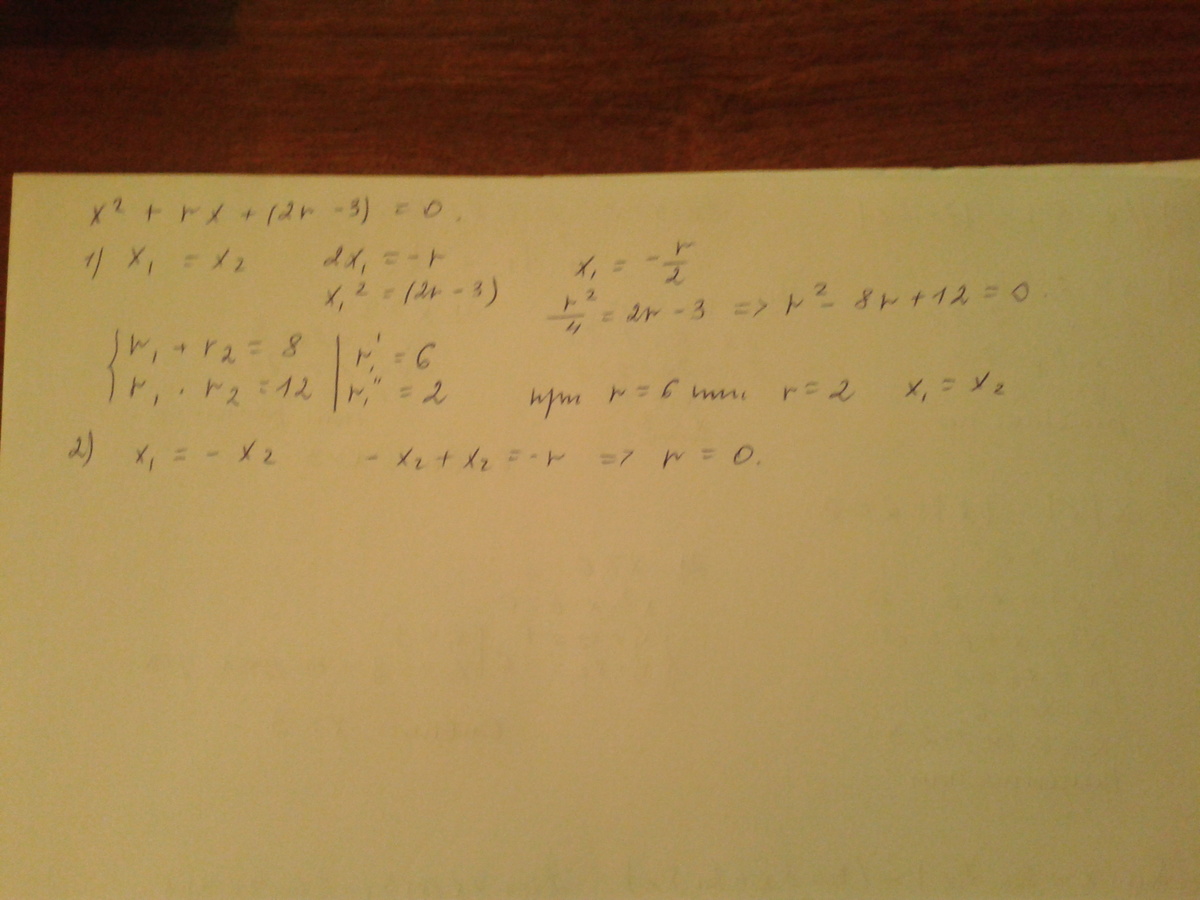 x² + rx + (2r - 3) = 0.
1) x₁ = x₂ 2x₁ = -r x₁ = -r/2
x₁² = (2r - 3) r²/4 = 2r - 3 => r² - 8r + 12 = 0.
{ r₁ + r₂ = 8 | r₁' = 6
r₁ · r₂ = 12 | r₁'' = 2 при r = 6 или r = 2 x₁ = x₂
2) x₁ = - x₂ - x₂ + x₂ = -r => r = 0.